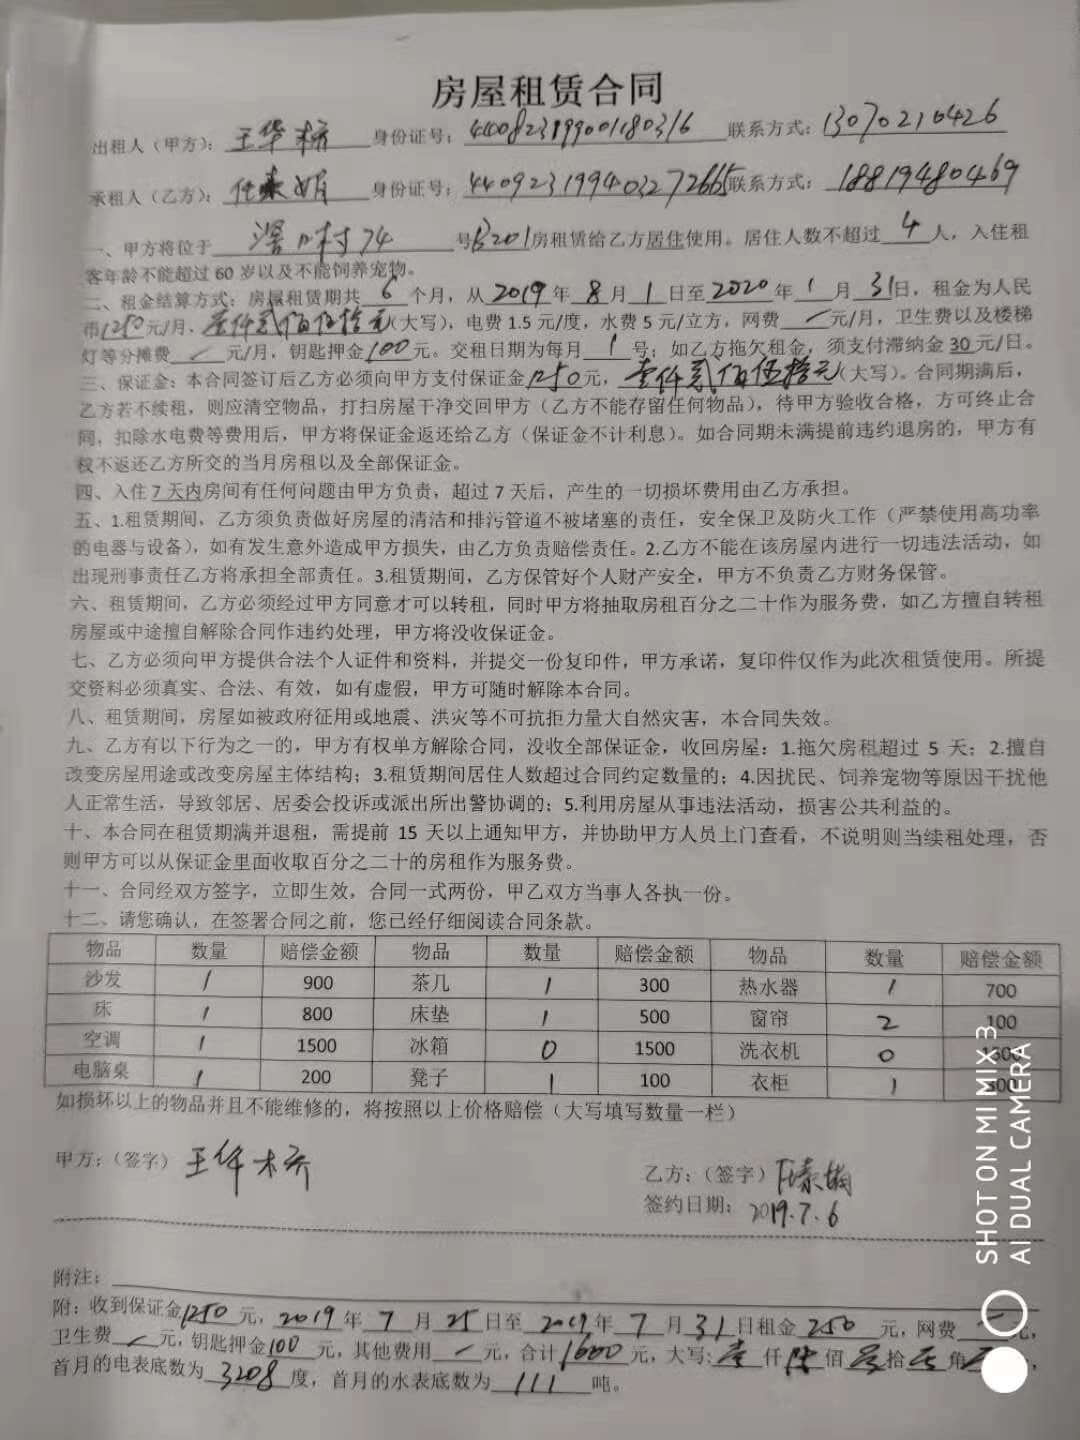 房屋租赁合同
出租人（甲方）：王华桥 身份证号：440823199001180316 联系方式：13070210426
承租人（乙方）： 身份证号：440923199403272665 联系方式：18819480469
一、甲方将位于 村74 号B201房租赁给乙方居住使用。居住人数不超过 4 人，入住租
客年龄不能超过 60 岁以及不能饲养宠物。
二、租金结算方式：房屋租赁期共 6 个月，从 2019 年 8 月 1 日至 2020 年 1 月 31 日，租金为人民
币1250元/月，壹仟贰佰伍拾元（大写），电费 1.5 元/度，水费 5 元/立方，网费 / 元/月，卫生费以及楼梯
灯等分摊费 / 元/月，钥匙押金100元。交租日期为每月 1 号；如乙方拖欠租金，须支付滞纳金 30 元/日。
三、保证金：本合同签订后乙方必须向甲方支付保证金1250元，壹仟贰佰伍拾元（大写）。合同期满后，
乙方若不续租，则应清空物品，打扫房屋干净交回甲方（乙方不能存留任何物品），待甲方验收合格，方可终止合
同，扣除水电费等费用后，甲方将保证金返还给乙方（保证金不计利息）。如合同期未满提前违约退房的，甲方有
权不返还乙方所交的当月房租以及全部保证金。
四、入住 7 天内房间有任何问题由甲方负责，超过 7 天后，产生的一切损坏费用由乙方承担。
五、1.租赁期间，乙方须负责做好房屋的清洁和排污管道不被堵塞的责任，安全保卫及防火工作（严禁使用高功率
的电器与设备），如有发生意外造成甲方损失，由乙方负责赔偿责任。2.乙方不能在该房屋内进行一切违法活动，如
出现刑事责任乙方将承担全部责任。3.租赁期间，乙方保管好个人财产安全，甲方不负责乙方财务保管。
六、租赁期间，乙方必须经过甲方同意才可以转租，同时甲方将抽取房租百分之二十作为服务费，如乙方擅自转租
房屋或中途擅自解除合同作违约处理，甲方将没收保证金。
七、乙方必须向甲方提供合法个人证件和资料，并提交一份复印件，甲方承诺，复印件仅作为此次租赁使用。所提
交资料必须真实、合法、有效，如有虚假，甲方可随时解除本合同。
八、租赁期间，房屋如被政府征用或地震、洪灾等不可抗拒力量大自然灾害，本合同失效。
九、乙方有以下行为之一的，甲方有权单方解除合同，没收全部保证金，收回房屋：1.拖欠房租超过 5 天；2.擅自
改变房屋用途或改变房屋主体结构；3.租赁期间居住人数超过合同约定数量的；4.因扰民、饲养宠物等原因干扰他
人正常生活，导致邻居、居委会投诉或派出所出警协调的；5.利用房屋从事违法活动，损害公共利益的。
十、本合同在租赁期满并退租，需提前 15 天以上通知甲方，并协助甲方人员上门查看，不说明则当续租处理，否
则甲方可以从保证金里面收取百分之二十的房租作为服务费。
十一、合同经双方签字，立即生效，合同一式两份，甲乙双方当事人各执一份。
十二、请您确认，在签署合同之前，您已经仔细阅读合同条款。
物品 数量 赔偿金额 物品 数量 赔偿金额 物品 数量 赔偿金额
沙发 1 900 茶几 1 300 热水器 1 700
床 1 800 床垫 1 500 窗帘 2 100
空调 1 1500 冰箱 0 1500 洗衣机 0
电脑桌 1 200 凳子 1 100 衣柜 1
如损坏以上的物品并且不能维修的，将按照以上价格赔偿（大写填写数量一栏）
甲方：（签字）王华桥
乙方：（签字）
签约日期：2019.7.6
附注：
附：收到保证金1250元，2019年 7 月 25 日至 2019年 7 月 31 日租金 250 元，网费 / 元，
卫生费 / 元，钥匙押金100 元，其他费用 / 元，合计1600元，大写：壹仟陆佰零拾零角
首月的电表底数为 3208 度，首月的水表底数为 111 吨。
SHOT ON MI MIX 3
AI DUAL CAMERA